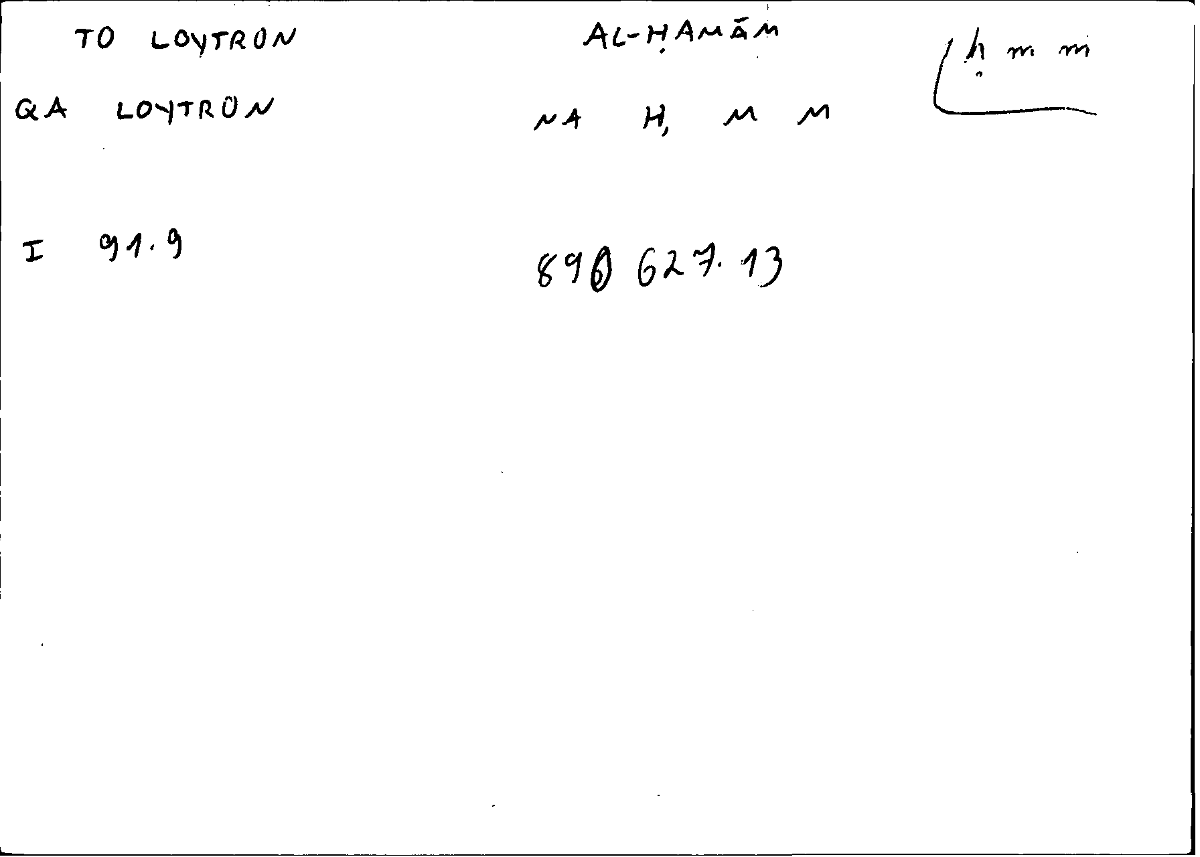 TO LOYTRON AL-ḤAMĀM ḥ m m
QA LOYTRON NA H, M M
I 91.9 890 627.13